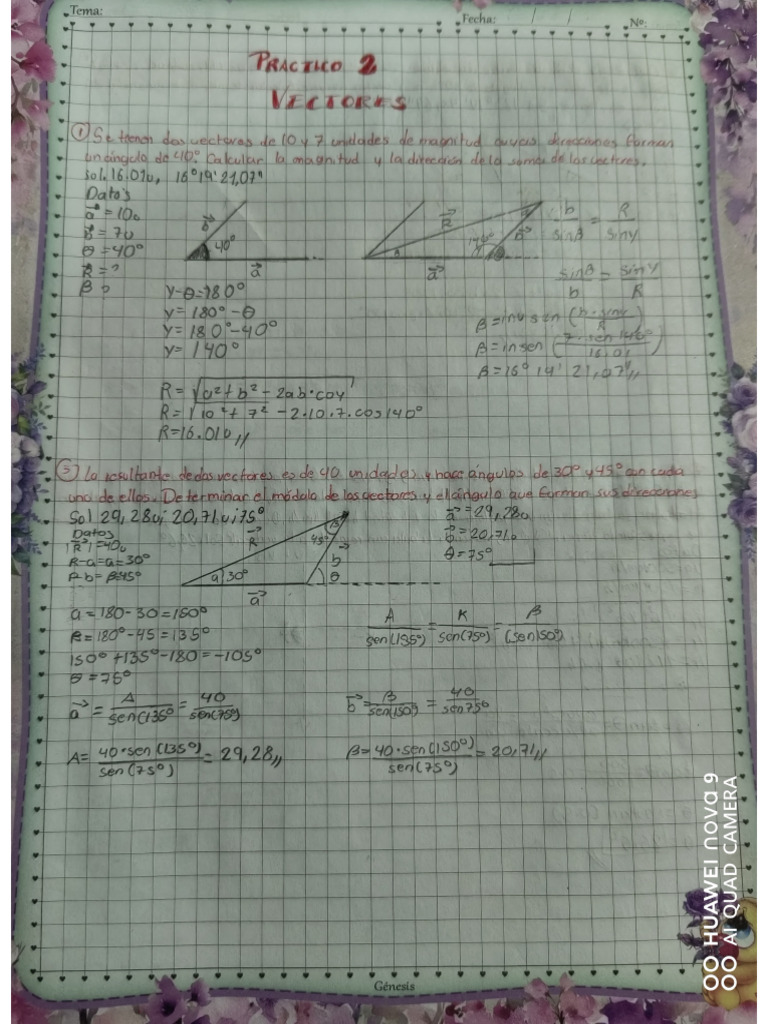 Tema:
Fecha: / /
Nº:
PRACTICO 2
VECTORES
① Se tienen dos vectores de 10 y 7 unidades de magnitud cuyas direcciones forman
un ángulo de 40° Calcular la magnitud y la dirección de la suma de los vectores.
sol. 16.01u, 16°14'21,07"
Datos
a⃗ = 10u
b⃗ = 7u
θ = 40°
R⃗ = ?
β ?
b⃗
40°
a⃗
R⃗
b⃗
a⃗
b/sinβ = R/sinγ
sinβ/b = sinγ/R
γ-θ=180°
γ = 180° - θ
γ = 180° - 40°
γ = 140°
β = 16° 14' 21,07"//
R = √a² + b² - 2ab·cosγ
R = √10² + 7² - 2·10·7·cos 140°
R = 16.01u//
La resultante de dos vectores es de 40 unidades y hace ángulos de 30° y 45° con cada
uno de ellos. Determinar el módulo de los vectores y el ángulo que forman sus direcciones
Sol 29,28u; 20,71u; 75°
Datos
|R⃗| = 40u
R-a=a=30°
R-b=β=45°
R⃗
45°
b⃗
a 30°
θ
a⃗
a⃗ = 29,28u
b⃗ = 20,71u
θ = 75°
a = 180 - 30 = 150°
β = 180° - 45 = 135°
150° + 135° - 180 = -105°
θ = 75°
A/sen(135°) = R/sen(75°) = β/(sen150°)
a⃗ = A/sen(135° = 40/sen(75°)
b⃗ = β/sen(150°) = 40/sen75°
A = 40·sen(135°)/sen(75°) = 29,28//
β = 40·sen(150°)/sen(75°) = 20,71//
Génesis
HUAWEI nova 9
AI QUAD CAMERA